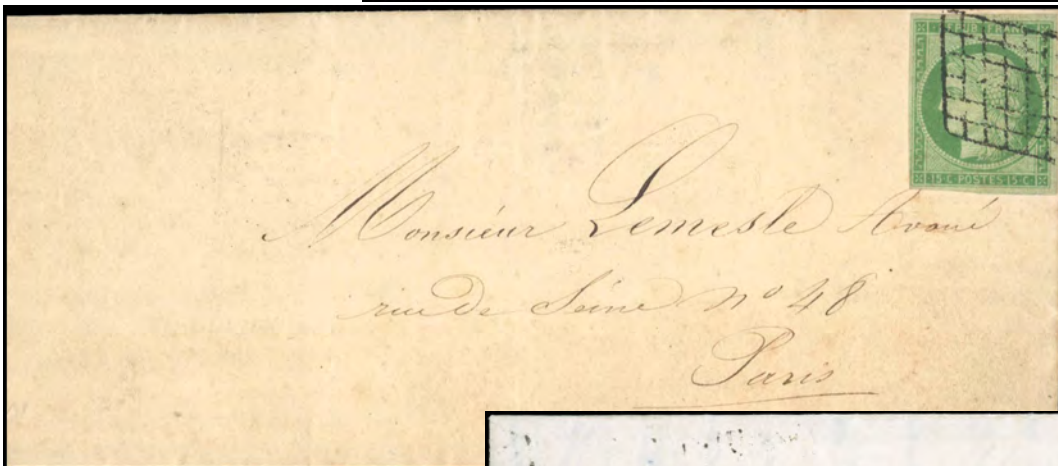 15 C. POSTES 15 C.
Monsieur Lemesle Avoué
rue De Seine n° 48
Paris